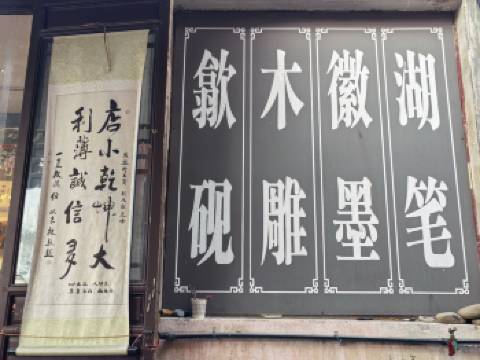 湖笔
徽墨
木雕
歙砚
店小乾坤大
利薄誠信多